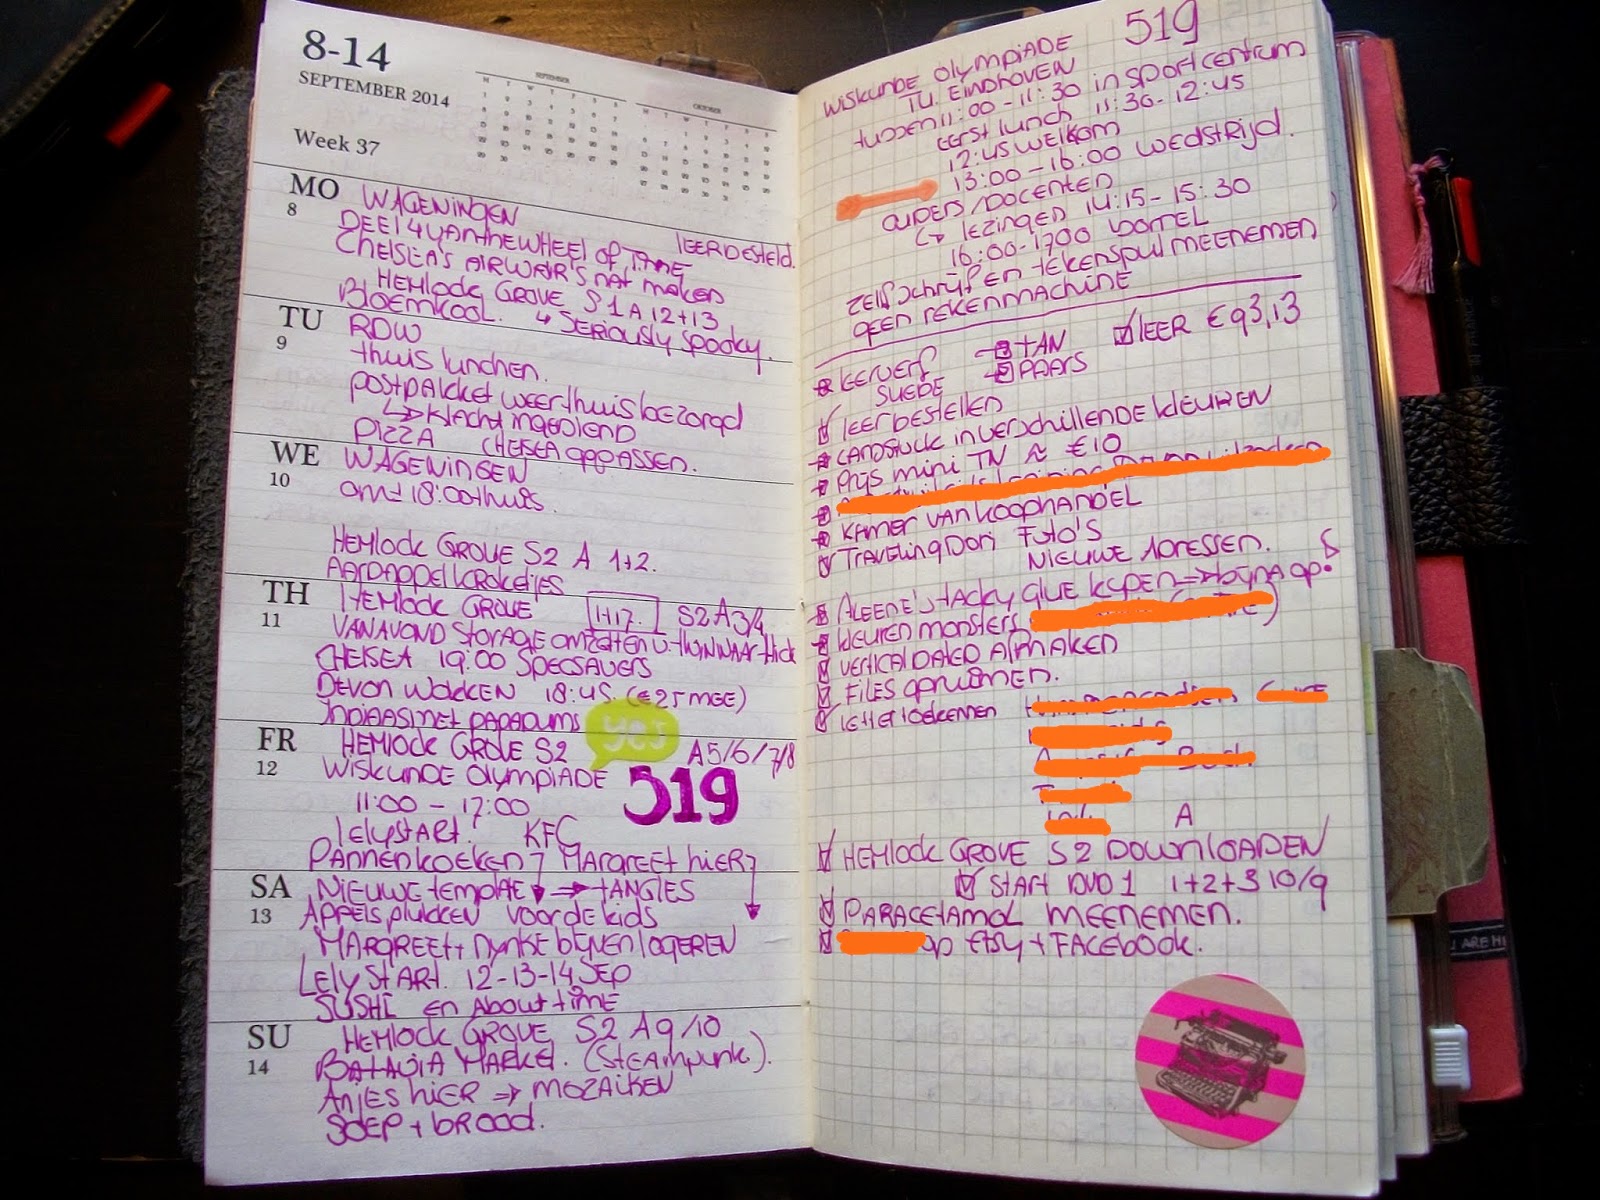 8-14
SEPTEMBER 2014
Week 37
SEPTEMBER
OKTOBER
MO
8
WAGENINGEN
DEEL 4 VAN the WHEEL of TIME
LEER BESTELD.
CHELSEA'S AIRWAIR'S nat maken
HEMLOCK GROVE S1 A 12+13
BLOEMKOOL. ↳ SERIOUSLY SPOOKY.
TU
9
RDW
thuis lunchen.
postpakket weer thuis bezorgd
↳ Klacht ingediend
PIZZA CHELSEA oppassen.
WE
10
WAGENINGEN
om ± 18:00 thuis.
HEMLOCK GROVE S2 A 1+2.
AARDAPPELKROKETJES
TH
11
HEMLOCK GROVE 1+17. S2 A 3/4
VANAVOND STORAGE omzetten v. thin naar thick
CHELSEA 19:00 SPECSAVERS
DEVON WOKKEN 18:45. (€25 MEE)
Indiaas met papadums
yes
FR
12
HEMLOCK GROVE S2 A5/6/7/8
WISKUNDE OLYMPIADE 519
11:00 - 17:00
LELYSTART. KFC
PANNENKOEKEN? MARGREET HIER?
SA
13
NIEUWE template → TANGLES
APPELS plukken voor de kids
MARGREET + NYNKE blijven LOGEREN
LELYSTART. 12-13-14 SEP
SUSHI en About time
SU
14
HEMLOCK GROVE S2 A9/10
BATAVIA MARKET. (STEAMPUNK).
ANJES HIER → MOZAIKEN
SOEP + brood.
519
WISKUNDE OLYMPIADE
TU. EINDHOVEN
tussen 11:00 - 11:30 in sportcentrum
eerst lunch 11:30 - 12:45
12:45 Welkom
13:00 - 16:00 WEDSTRIJD.
OUDERS/DOCENTEN
↳ lezingen 14:15 - 15:30
16:00 - 1700 borrel
zelf schrijf en tekenspul meenemen
geen rekenmachine
LEERVERF TAN
SUEDE PAARS
LEER €93,13
leer bestellen
CANDSTUCK in verschillende kleuren
Prijs mini TN ≈ €10
KAMER VAN koophandel
Traveling Dori Foto's
NIEUWE ADRESSEN.
ALEENE'S tacky glue kopen → bijna op!
kleuren monsters
VERTICAL DATED AfMAKEN
FILES opruimen.
letter toekennen
A
HEMLOCK GROVE S2 DOWNLOADEN
START DVD 1 1+2+3 10/9
PARACETAMOL MEENEMEN.
op Etsy + FACEBOOK.